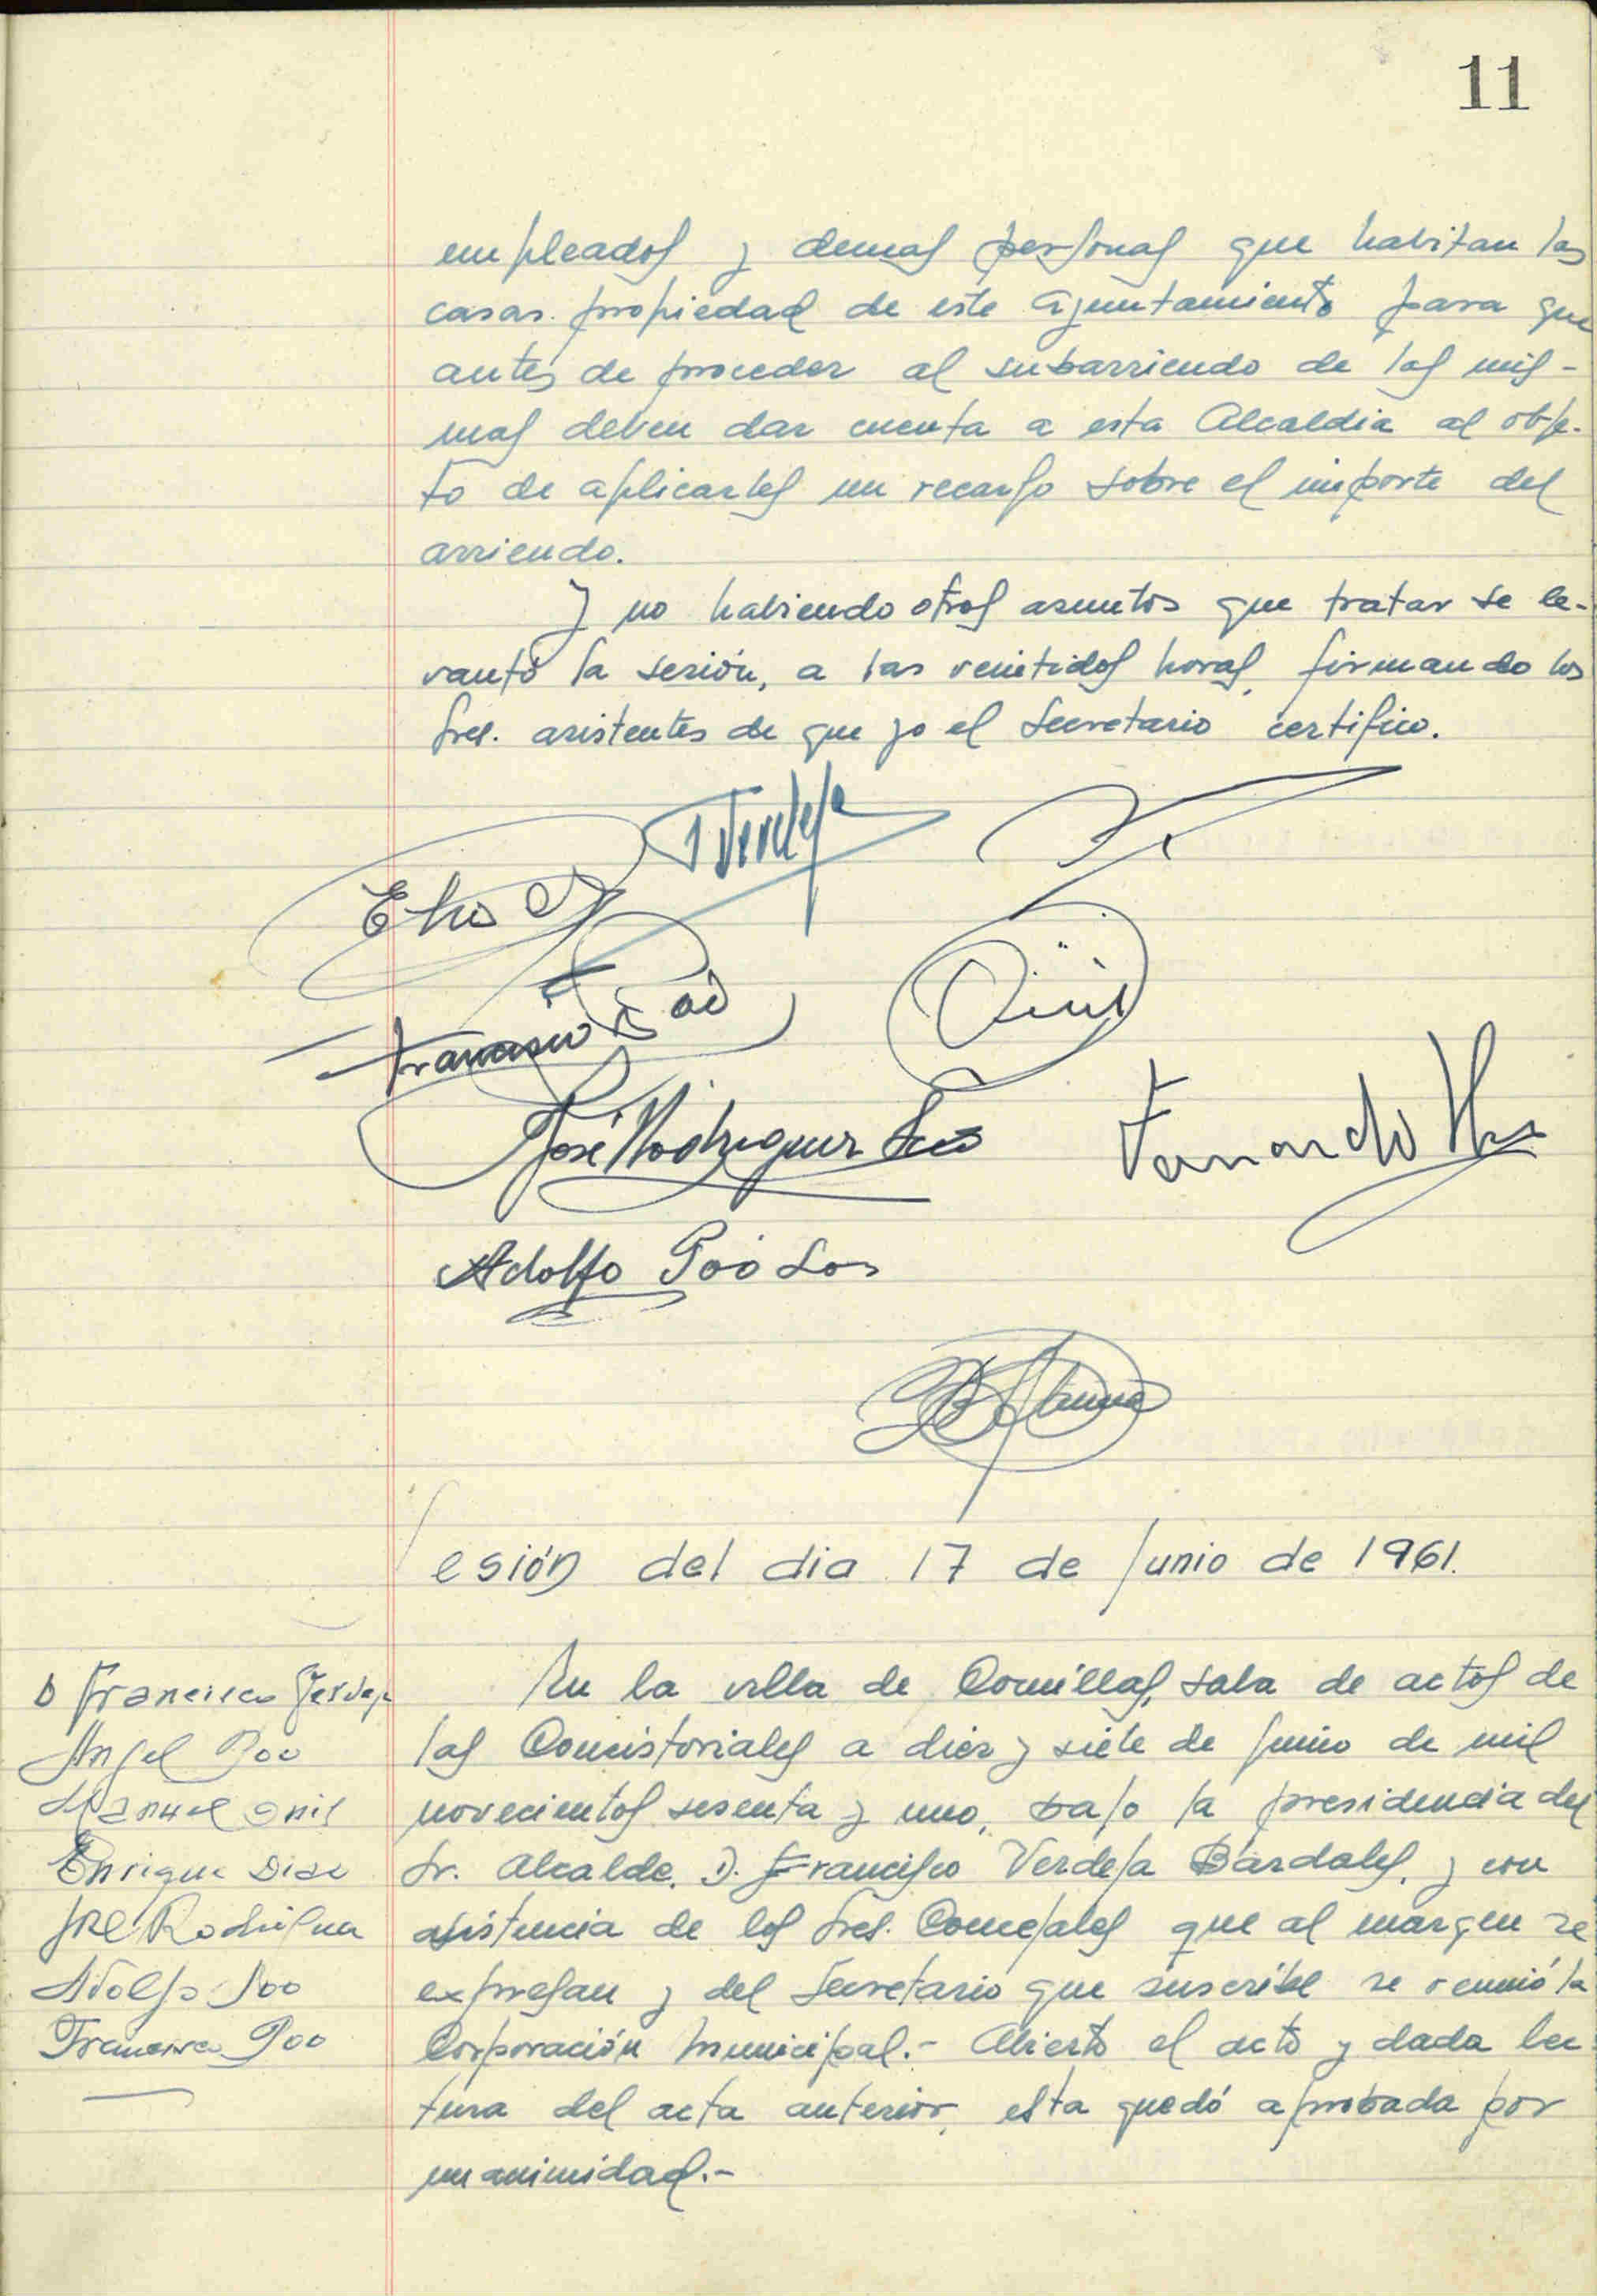 11
empleados y demas personas que habitan las
casas propiedad de este Ayuntamiento para que
antes de proceder al subarriendo de las mis-
mas deben dar cuenta a esta Alcaldia al obje-
to de aplicarles un recargo sobre el importe del
arriendo.
Y no habiendo otros asuntos que tratar se le-
vantó la sesión, a las veintidos horas, firmando los
Sres. asistentes de que yo el Secretario certifico.
Verdeja
Francisco Poó
José Rodriguez
Fernando
Adolfo Poó
Sesión del dia 17 de Junio de 1961.
D Francisco Verdeja
Angel Poo
Manuel
Enrique Diaz
José Rodrigue
Adolfo Poo
Francisco Poo
En la villa de Comillas, sala de actos de
las Consistoriales a diez y siete de Junio de mil
novecientos sesenta y uno, bajo la presidencia del
Sr. Alcalde, D. Francisco Verdeja Bardales, y con
asistencia de los Sres. Concejales que al margen se
expresan y del Secretario que suscribe se reunió la
Corporación Municipal.- Abierto el acto y dada lec
tura del acta anterior, esta quedó aprobada por
unanimidad.-